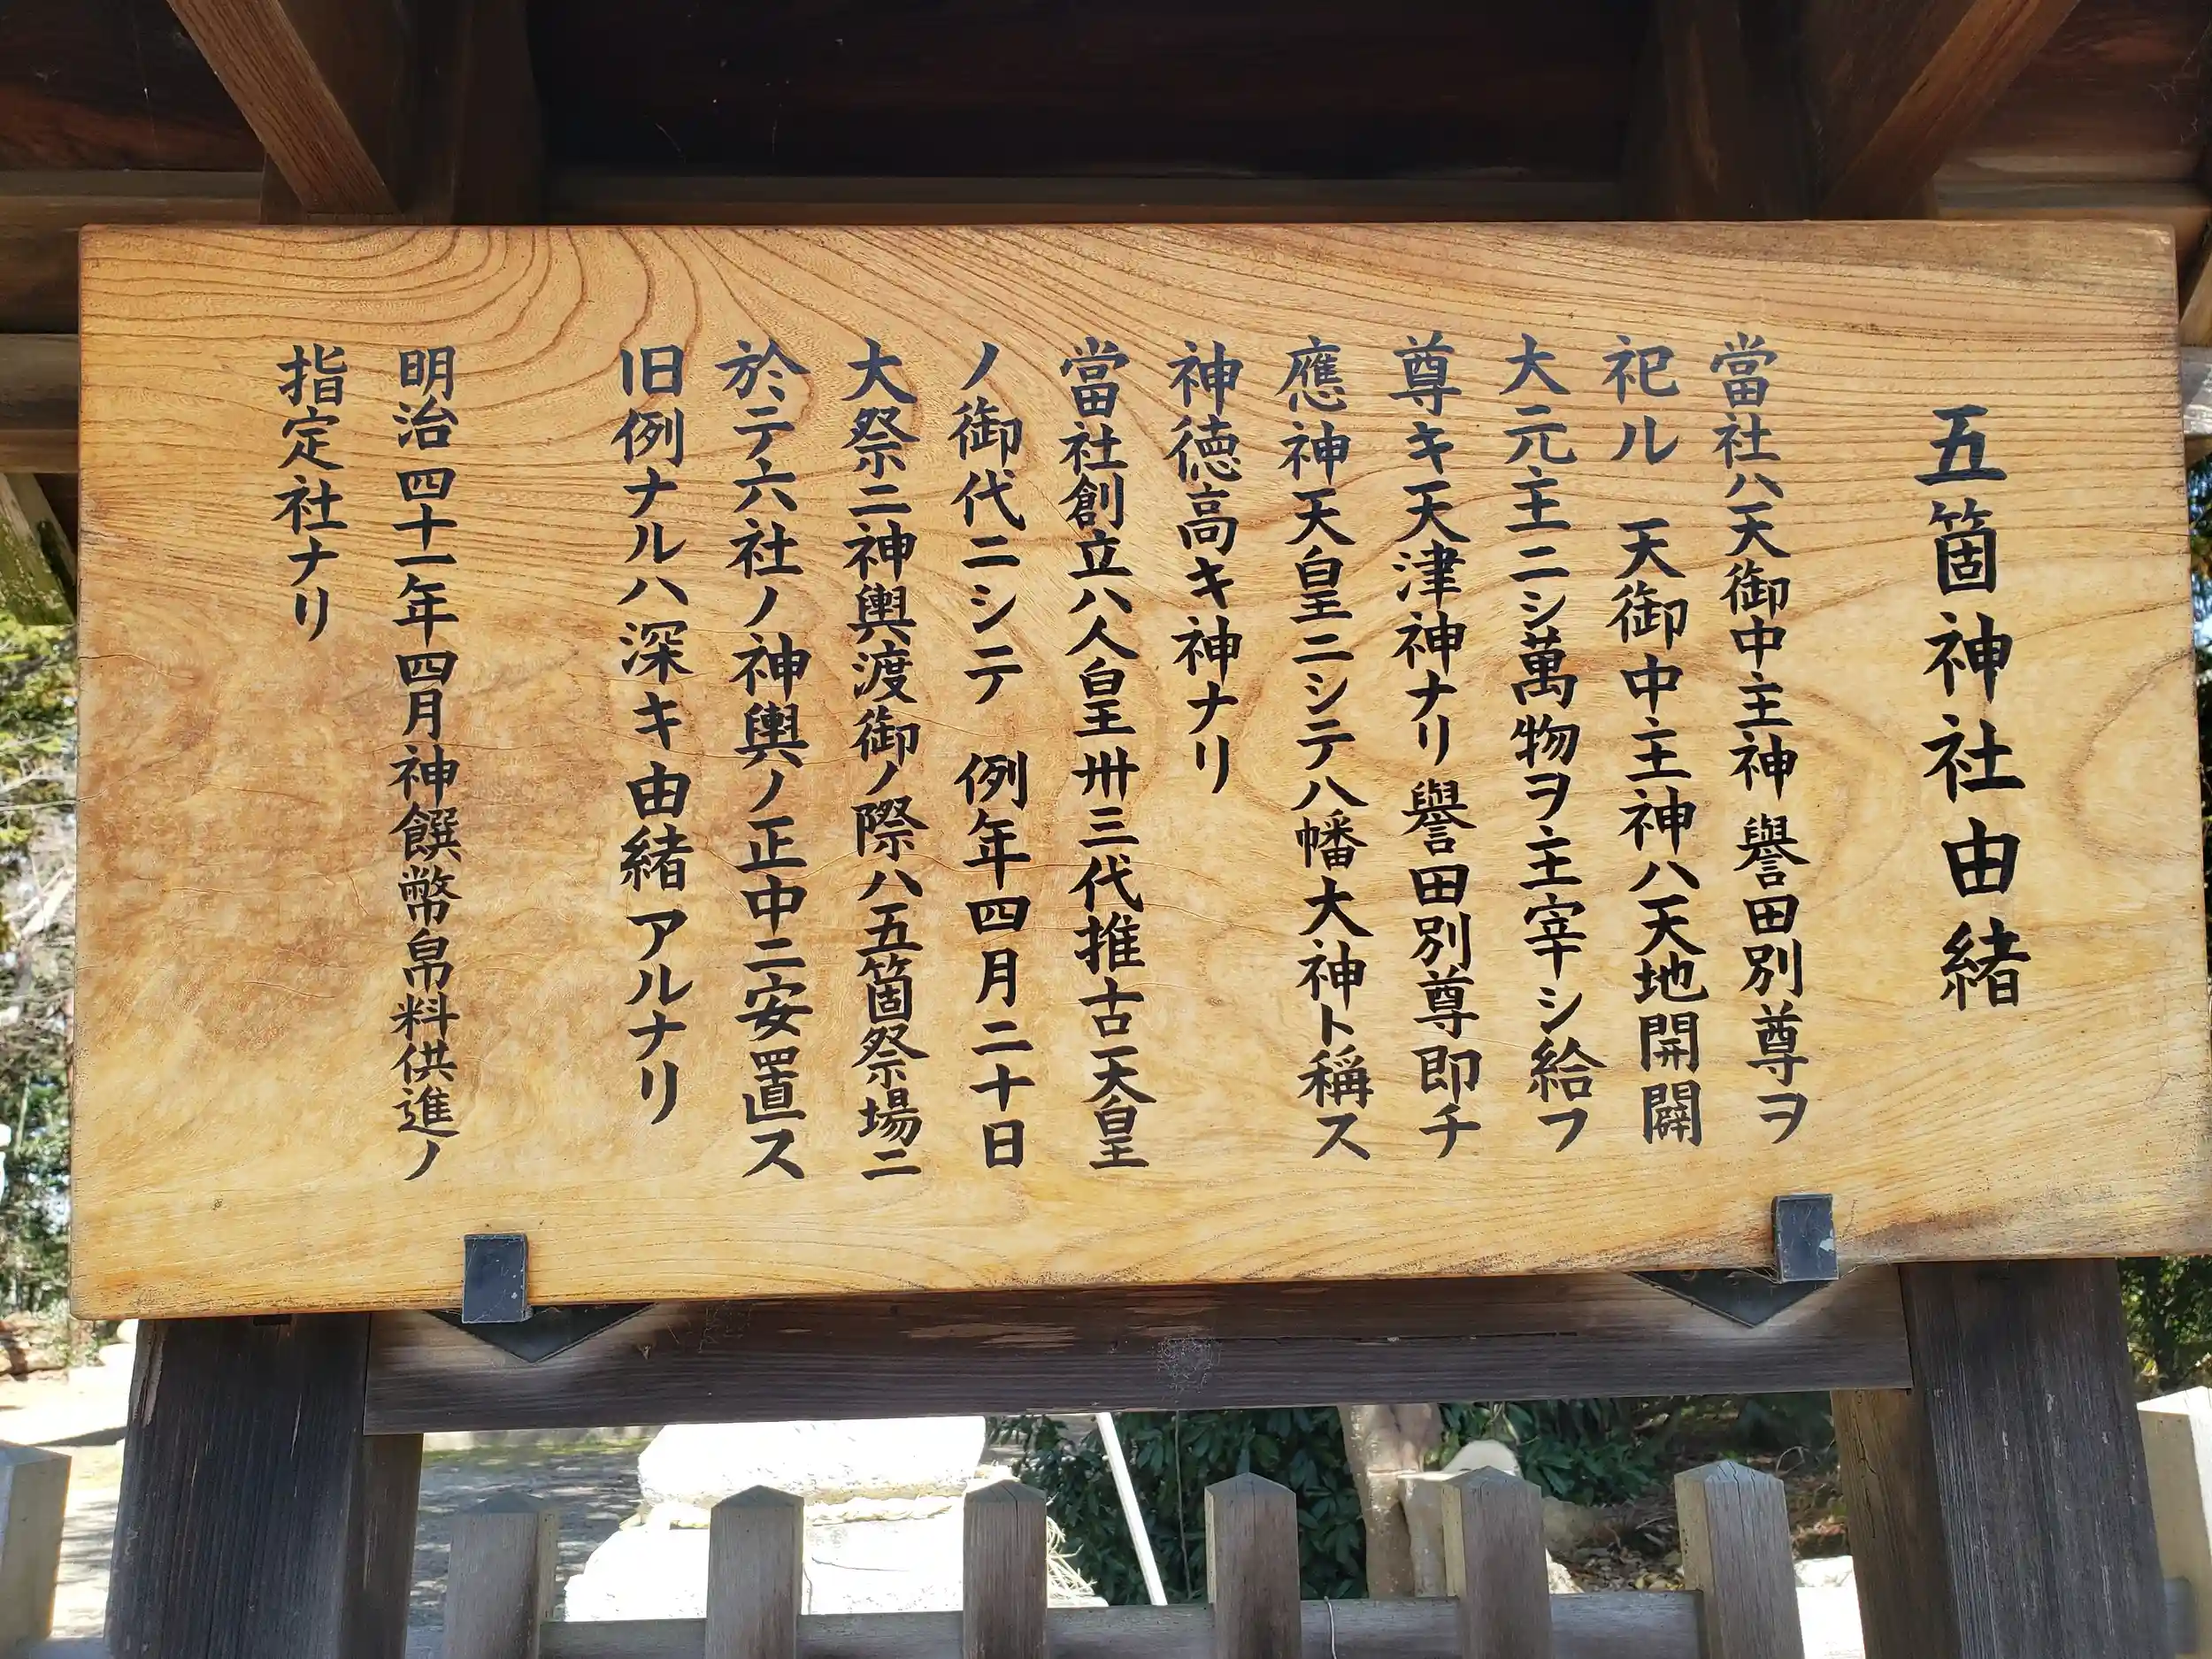 五箇神社由緒
當社ハ天御中主神 譽田別尊ヲ
祀ル 天御中主神ハ天地開闢
大元主ニシ萬物ヲ主宰シ給フ
尊キ天津神ナリ 譽田別尊即チ
應神天皇ニシテ八幡大神ト稱ス
神徳高キ神ナリ
當社創立ハ人皇卅三代推古天皇
ノ御代ニシテ 例年四月二十日
大祭ニ神輿渡御ノ際ハ五箇祭場ニ
於テ六社ノ神輿ノ正中ニ安置ス
旧例ナルハ深キ由緒アルナリ
明治四十一年四月神饌幣帛料供進ノ
指定社ナリ